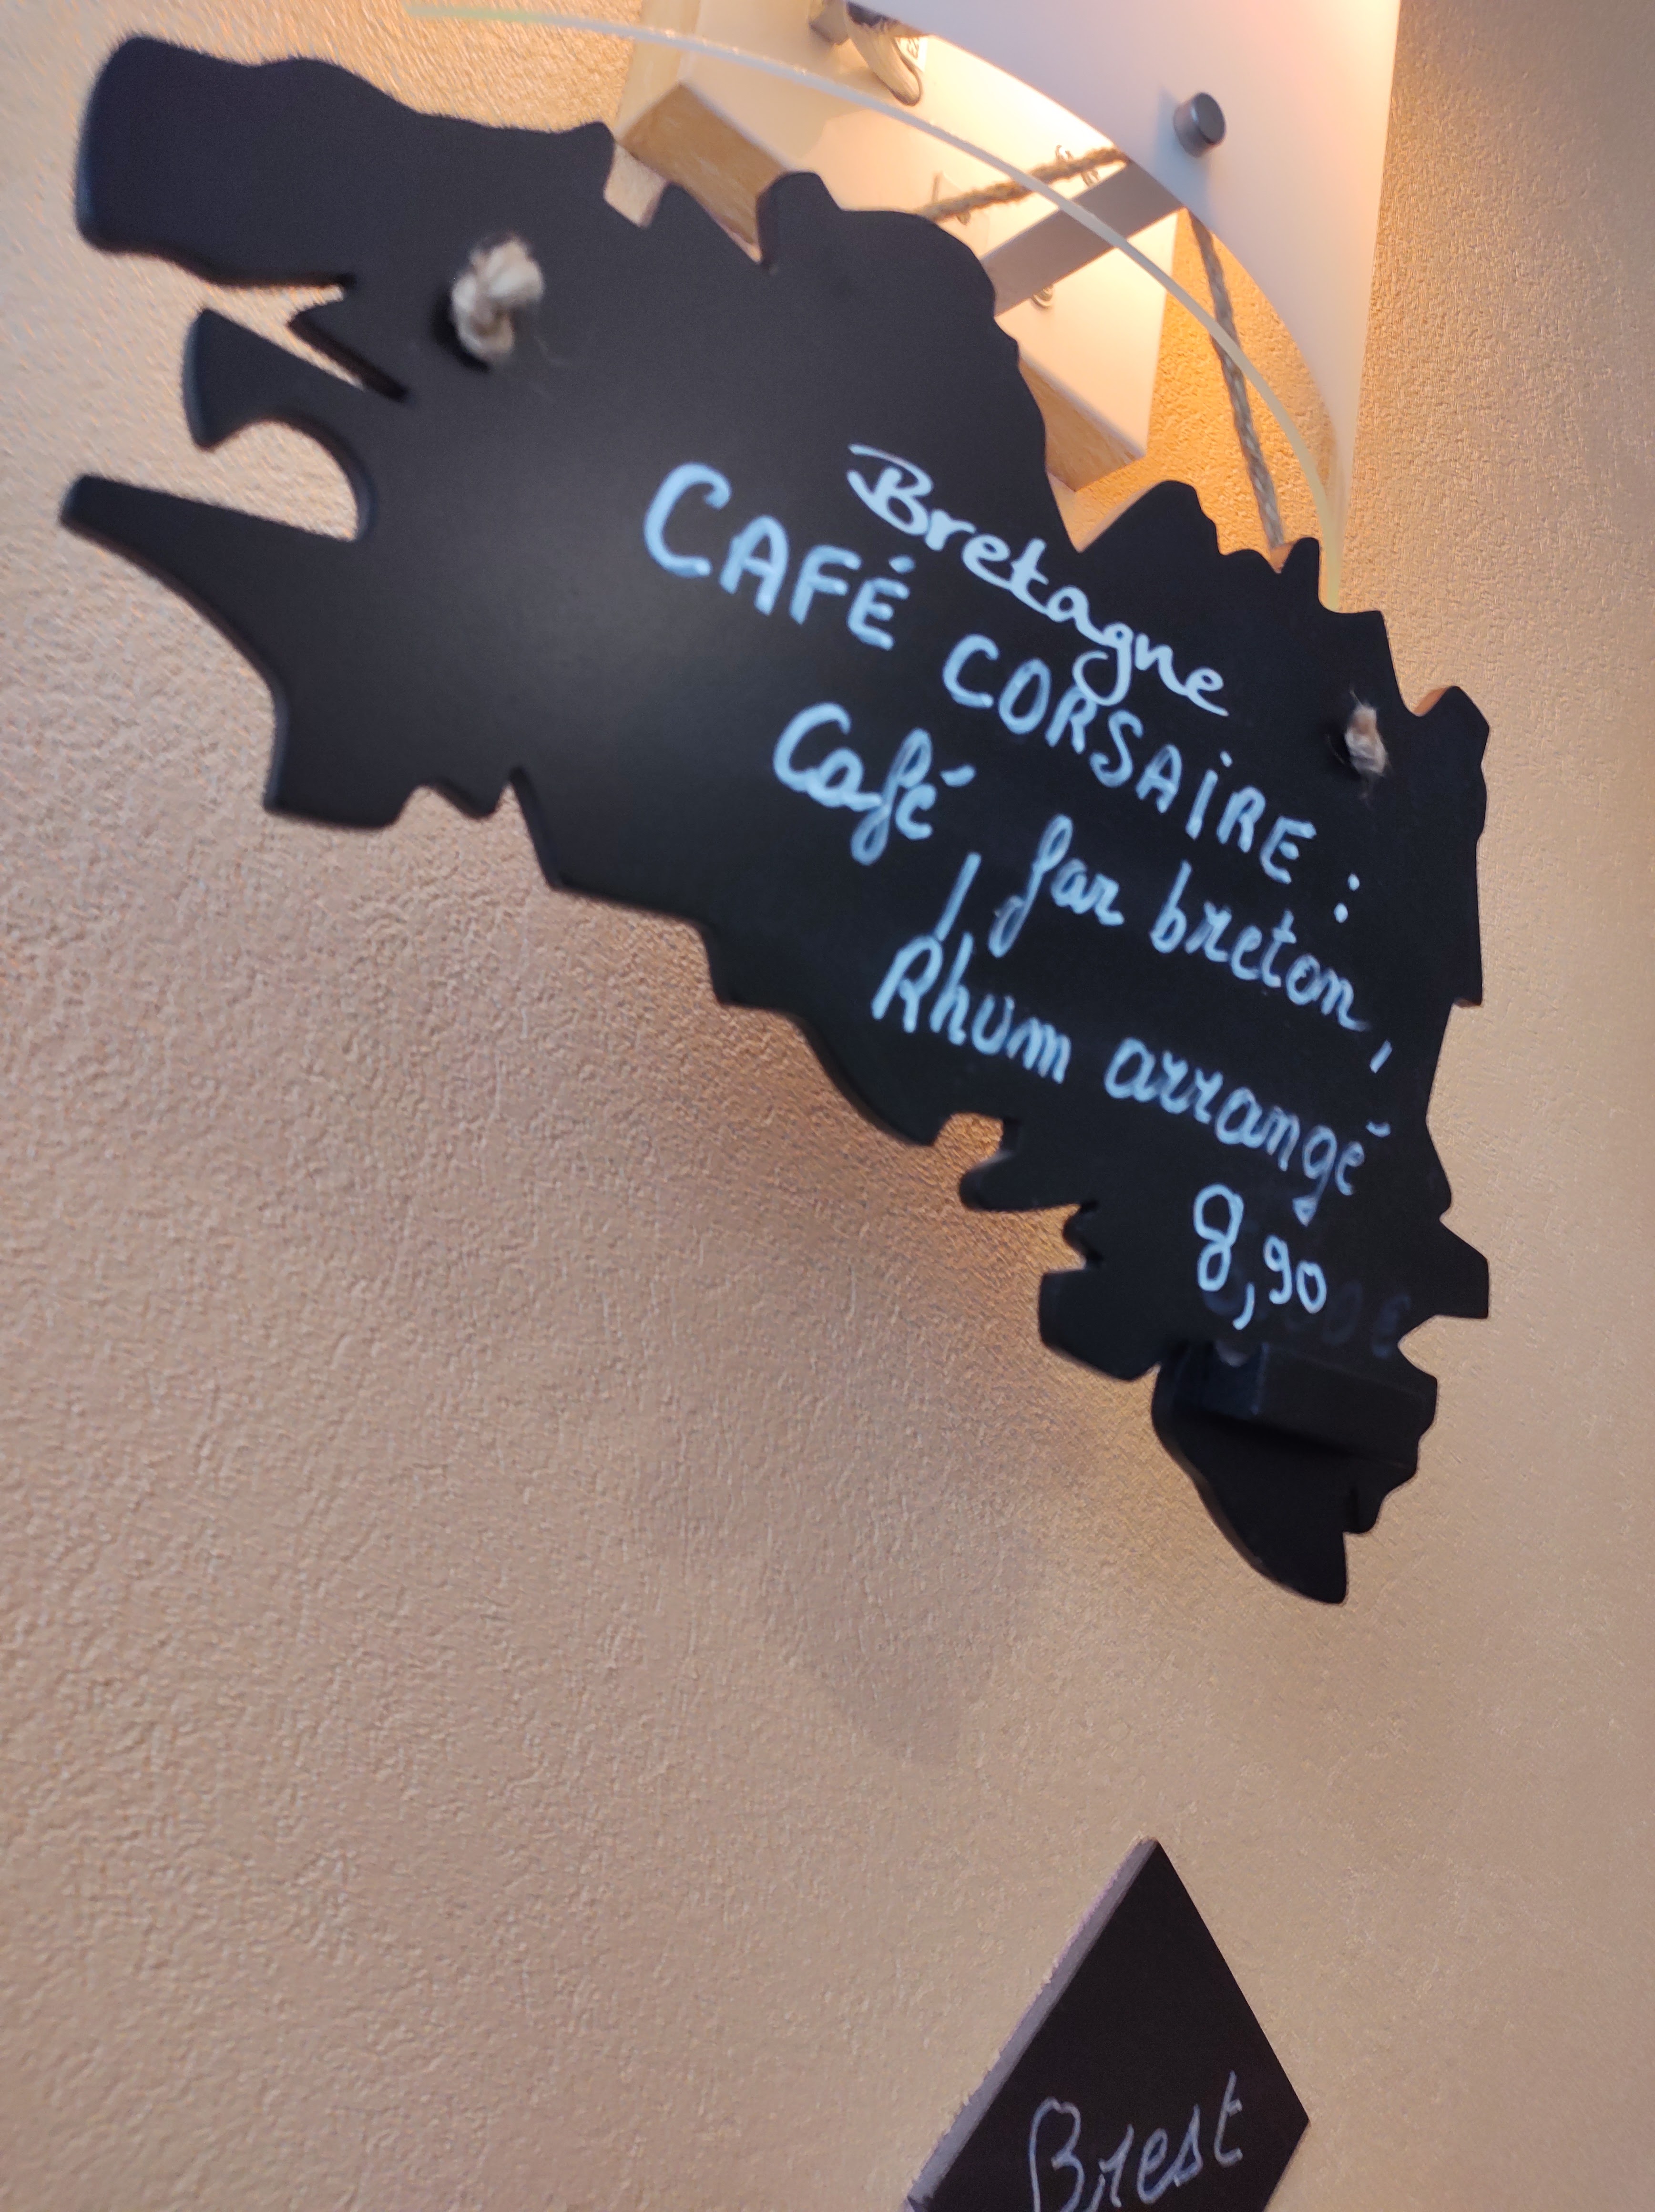 Bretagne
CAFÉ CORSAIRE :
Café, far breton,
Rhum arrangé
8,90
Brest